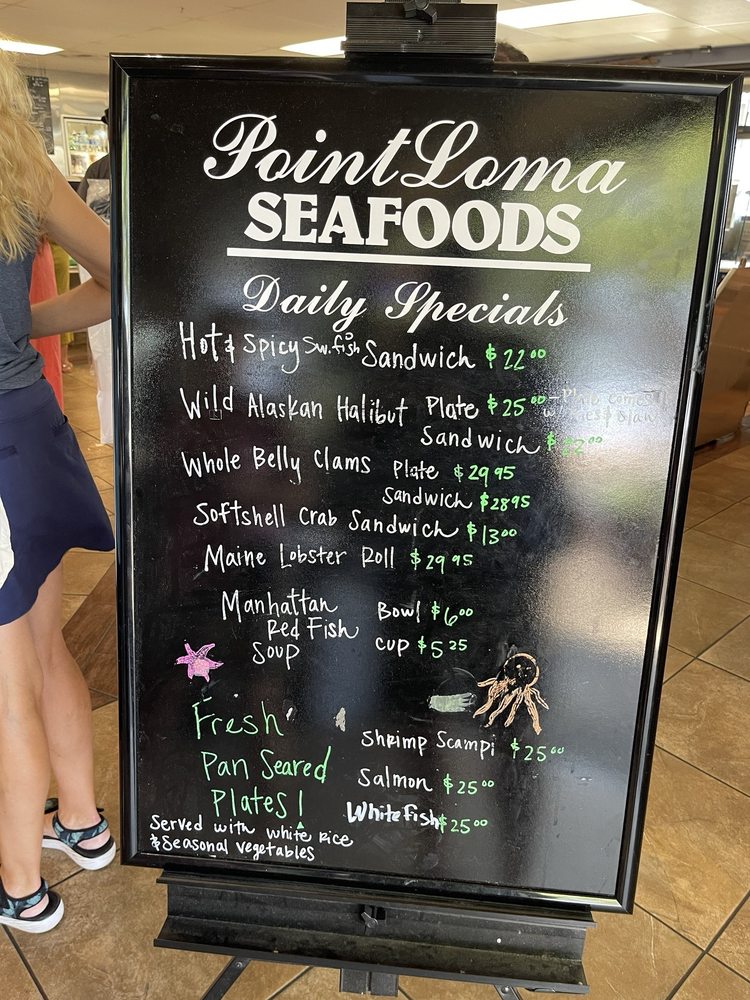 Point Loma
SEAFOODS
Daily Specials
Hot & Spicy Sw.fish Sandwich $22.00
Wild Alaskan Halibut Plate $25.00 - Plate comes
w/ & Slaw
Sandwich $22.00
Whole Belly Clams Plate $29.95
Sandwich $28.95
Softshell Crab Sandwich $13.00
Maine Lobster Roll $29.95
Manhattan Bowl $6.00
Red Fish
Soup Cup $5.25
Fresh
Pan Seared
Plates!
Shrimp Scampi $25.00
Salmon $25.00
Whitefish $25.00
Served with white Rice
& Seasonal vegetables